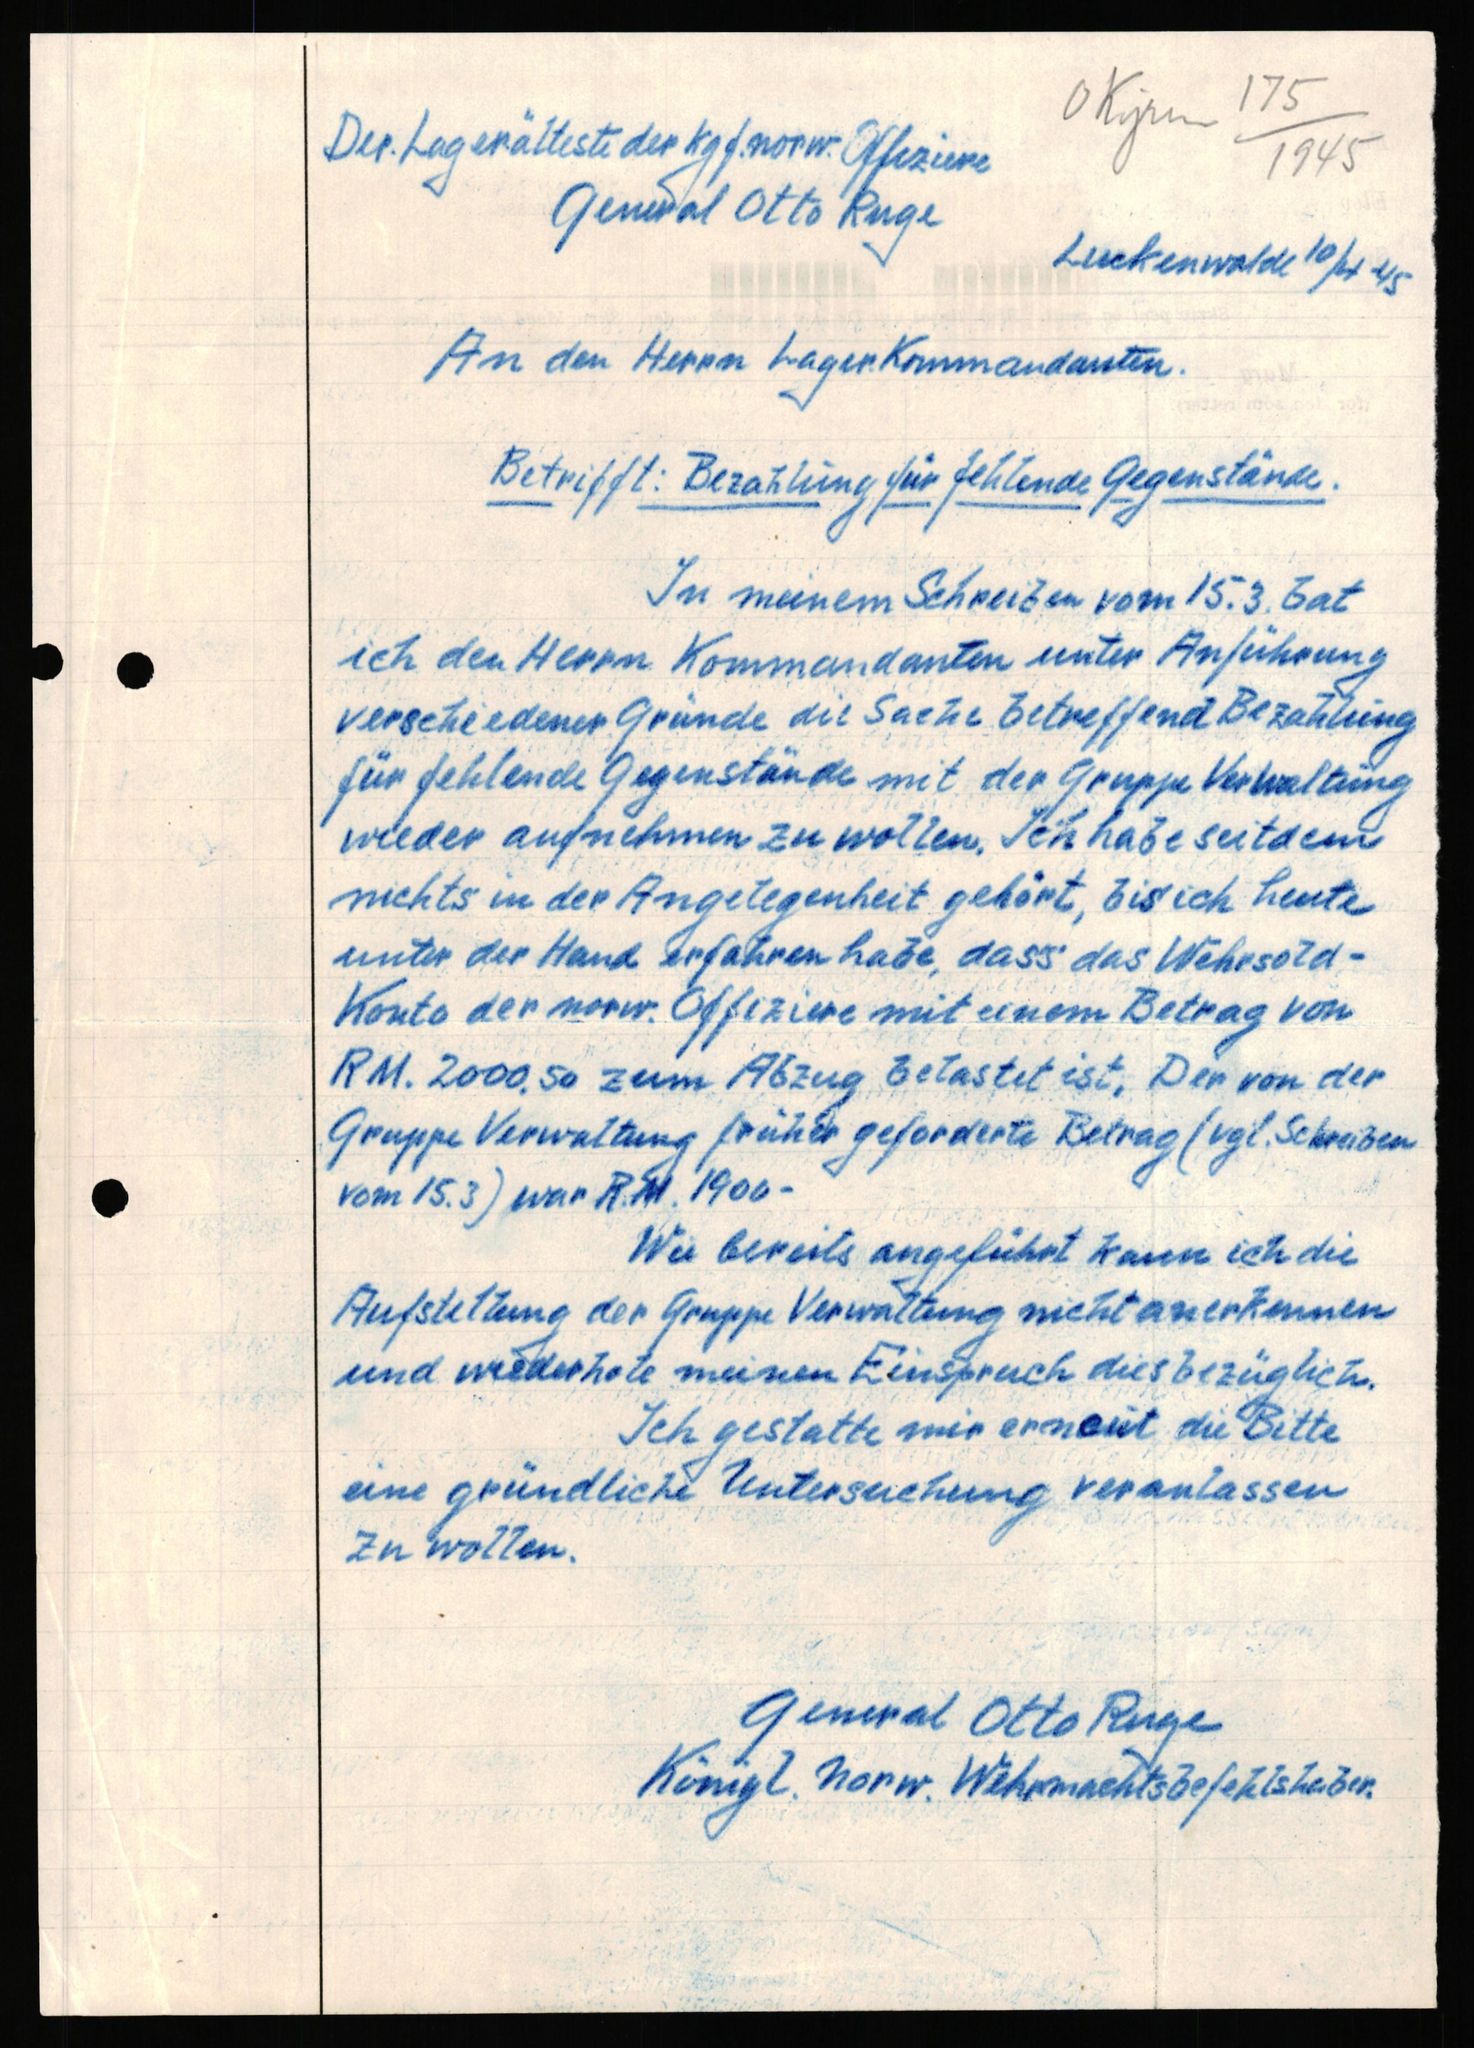 175
1945
Der Lagerälteste der Kgf. norw. Offiziere
General Otto Ruge
Luckenwalde 10/4 45
An den Herrn Lagerkommandanten.
Betrifft: Bezahlung für fehlende Gegenstände.
In meinem Schreiben vom 15.3. bat
ich den Herrn Kommandanten unter Anführung
verschiedener Gründe die Sache betreffend Bezahlung
für fehlende Gegenstände mit der Gruppe Verwaltung
wieder aufnehmen zu wollen. Ich habe seitdem
nichts in der Angelegenheit gehört, bis ich heute
unter der Hand erfahren habe, dass das Wehrsold-
Konto der norw. Offiziere mit einem Betrag von
RM. 2000.50 zum Abzug belastet ist. Der von der
Gruppe Verwaltung früher geforderte Betrag (vgl. Schreiben
vom 15.3) war R.M. 1900-
Wie bereits angeführt kann ich die
Aufstellung der Gruppe Verwaltung nicht anerkennen
und wiederhole meinen Einspruch diesbezüglich.
Ich gestatte mir erneut die Bitte
eine gründliche Untersuchung veranlassen
zu wollen.
General Otto Ruge
Königl. Norw. Wehrmachtsbefehlshaber.